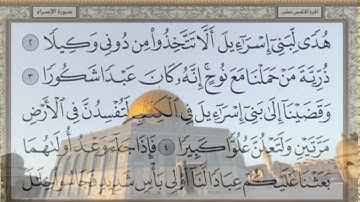 الجزء الخامس عشر سورة الإسراء
هُدًى لِّبَنِىٓ إِسْرَٰٓءِيلَ أَلَّا تَتَّخِذُوا۟ مِن دُونِى وَكِيلًا ٢
ذُرِّيَّةَ مَنْ حَمَلْنَا مَعَ نُوحٍ ۚ إِنَّهُۥ كَانَ عَبْدًا شَكُورًا ٣
وَقَضَيْنَآ إِلَىٰ بَنِىٓ إِسْرَٰٓءِيلَ فِى ٱلْكِتَٰبِ لَتُفْسِدُنَّ فِى ٱلْأَرْضِ
مَرَّتَيْنِ وَلَتَعْلُنَّ عُلُوًّا كَبِيرًا ٤ فَإِذَا جَآءَ وَعْدُ أُولَىٰهُمَا
بَعَثْنَا عَلَيْكُمْ عِبَادًا لَّنَآ أُو۟لِى بَأْسٍ شَدِيدٍ فَجَاسُوا۟ خِلَٰلَ